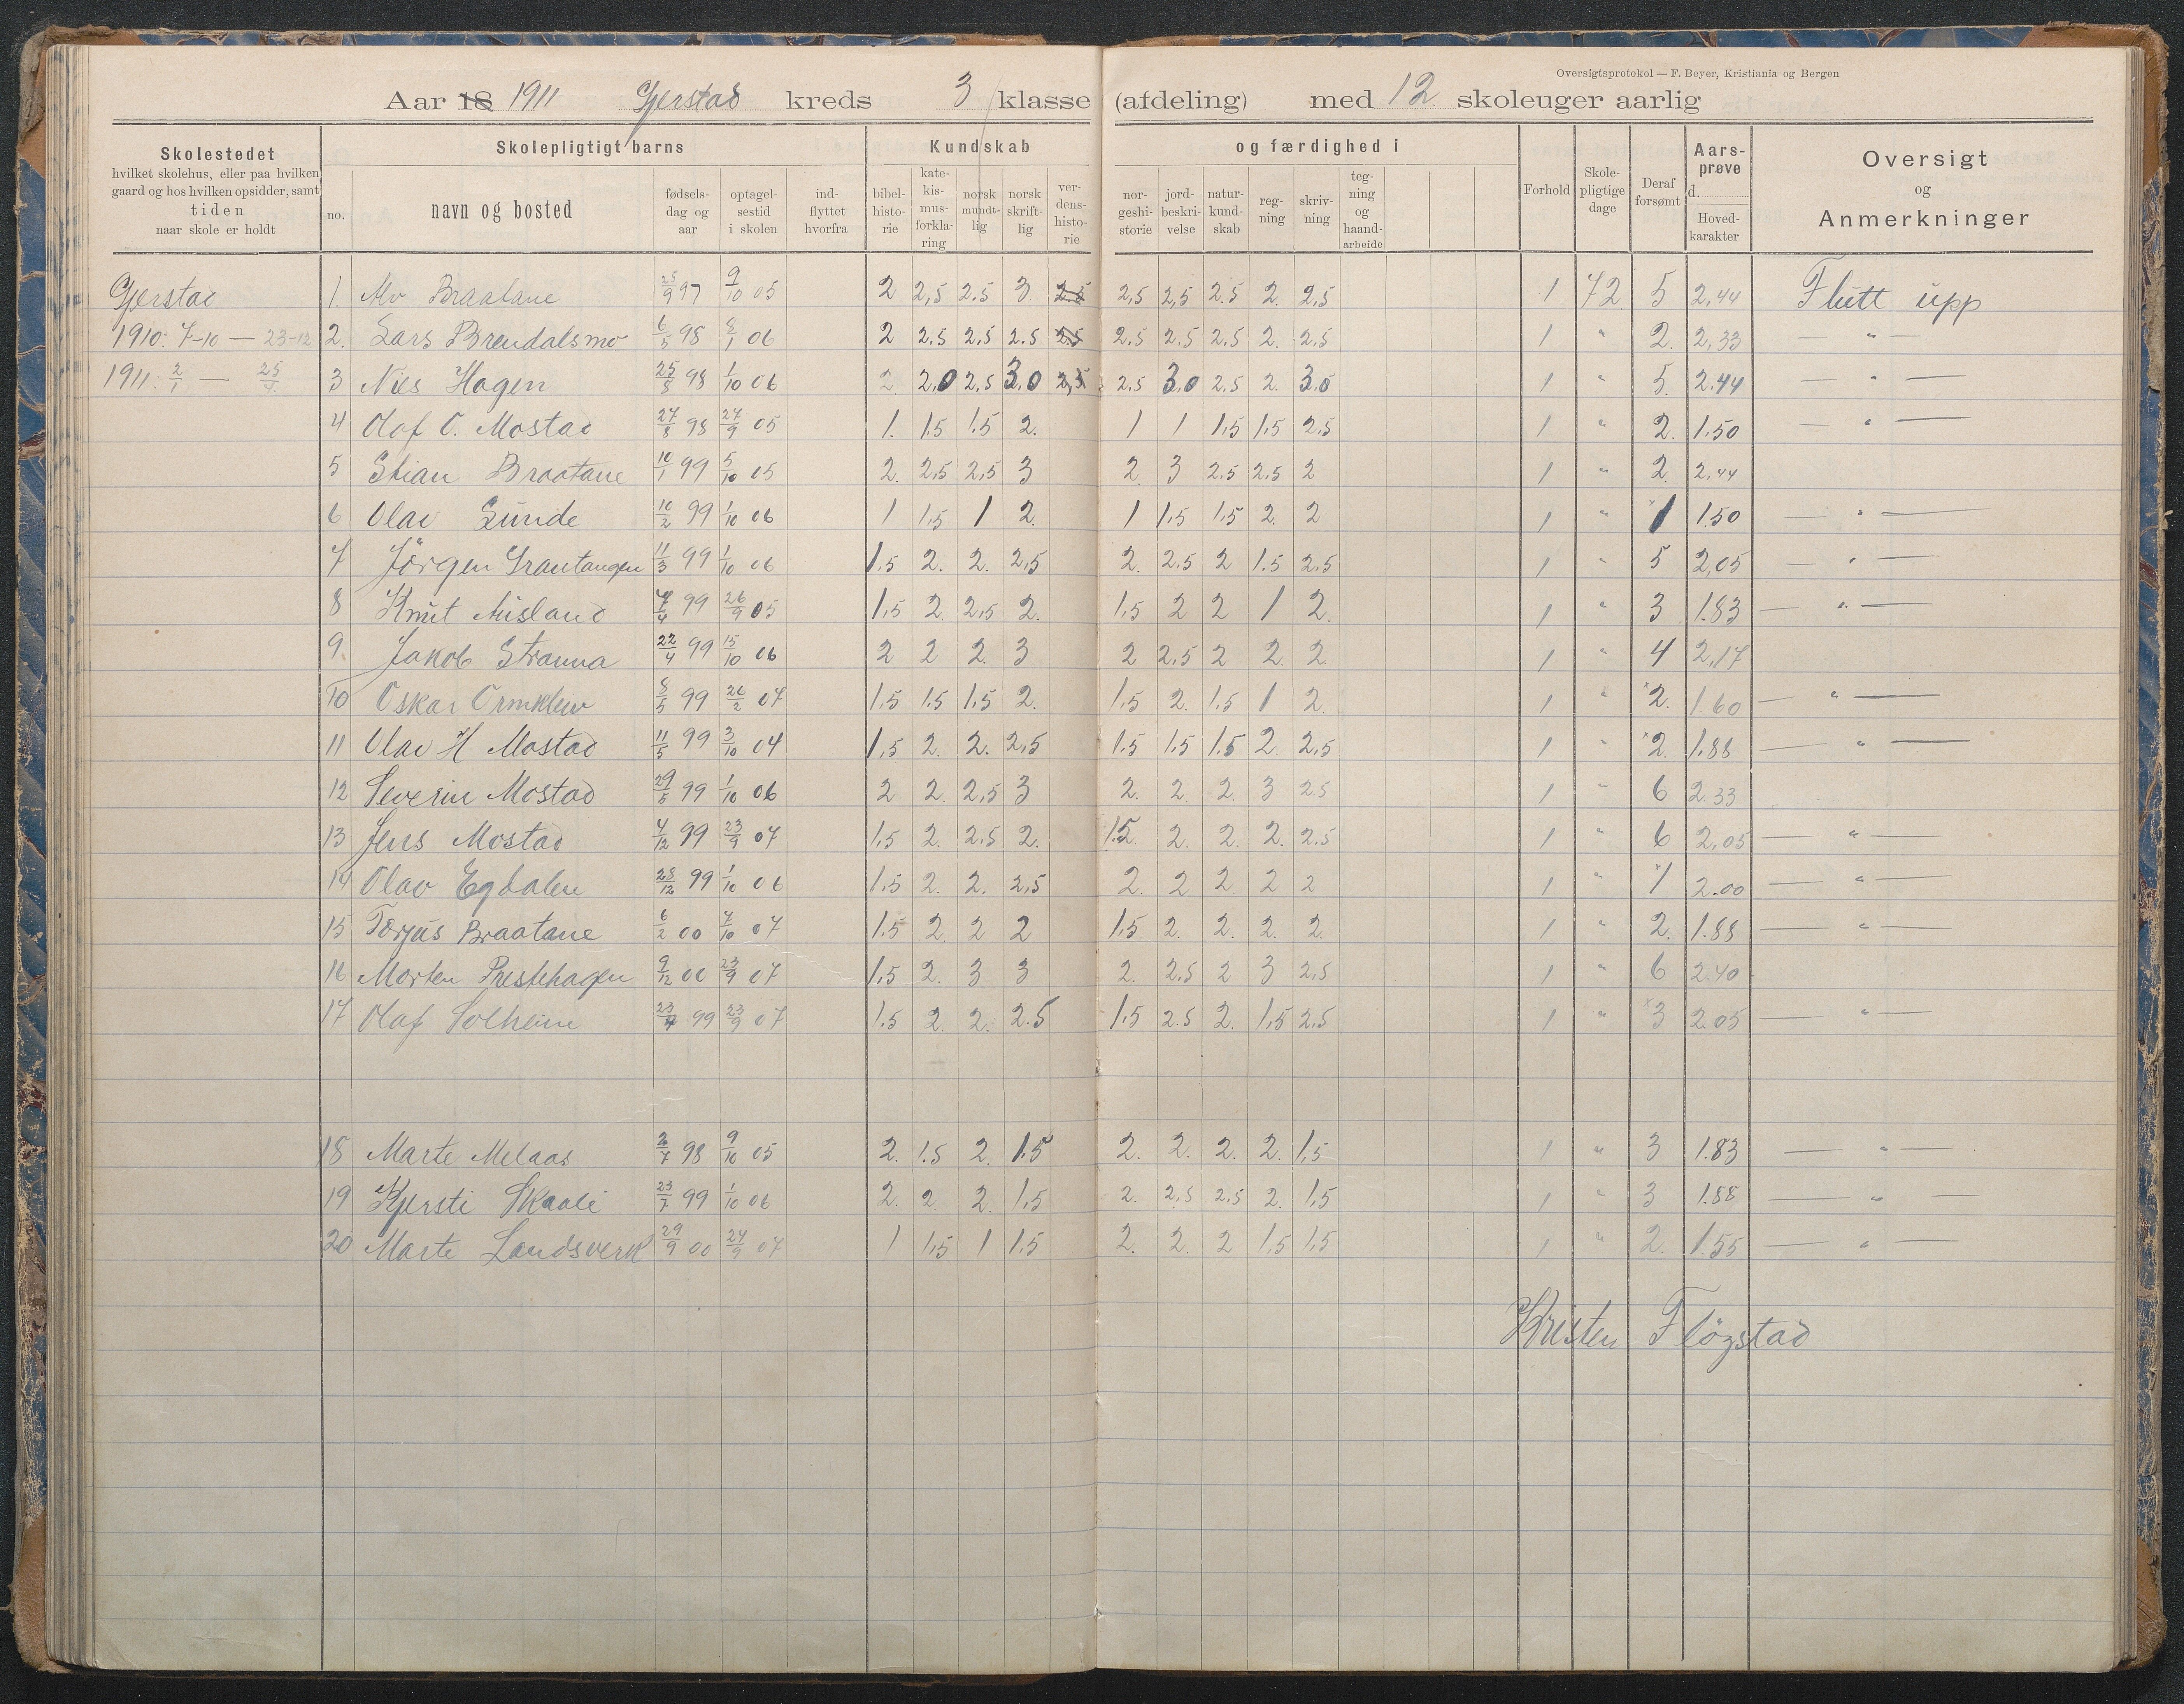 Oversigtsprotokol — F. Beyer, Kristiania og Bergen
Aar 18 1911 Gjerstad kreds 3 klasse (afdeling) med 12 skoleuger aarlig
Skolestedet
hvilket skolehus, eller paa hvilken
gaard og hos hvilken opsidder, samt
tiden
naar skole er holdt
Skolepligtigt barns
no.
navn og bosted
fødsels-
dag og
aar
optagel-
sestid
i skolen
ind-
flyttet
hvorfra
Kundskab
bibel-
histo-
rie
kate-
kis-
mus-
forkla-
ring
norsk
mundt-
lig
norsk
skrift-
lig
ver-
dens-
histo-
rie
og færdighed i
nor-
geshi-
storie
jord-
beskri-
velse
natur-
kund-
skab
reg-
ning
skriv-
ning
teg-
ning
og
haand-
arbeide
Forhold
Skole-
pligtige
dage
Deraf
forsømt
Aars-
prøve
d.
Hoved-
karakter
Oversigt
og
Anmerkninger
Gjerstad 1. Braatane 25/9 97 9/10 05 2 2,5 2.5 3 2.5 2,5 2,5 2.5 2. 2,5 1 72 5 2,44 Flutt upp
1910: 7-10 — 23-12 2. Lars Brendalsmo 6/5 98 8/1 06 2 2.5 2,5 2.5 2.5 2.5 2.5 2,5 2. 2,5 1 " 2. 2,33 — " —
1911: 2/1 — 25/4 3 Nils Hagen 25/5 98 1/10 06 2 2,0 2,5 3,0 2,5 2,5 3,0 2,5 2. 3,0 1 " 5. 2.44 — " —
4 Olaf O. Mostad 27/8 98 27/9 05 1. 1.5 1.5 2. 1 1 1,5 1,5 2,5 1 " 2. 1.50 — " —
5 Stian Braatane 10/1 99 5/10 05 2. 2,5 2,5 3 2. 3 2.5 2.5 2 1 " 2. 2,44
6 Olav Sunde 10/2 99 1/10 06 1 1,5 1 2. 1 1,5 1,5 2. 2 1 " 1 1.50 — " —
7 Jörgen Grantangen 11/3 99 1/10 06 1.5 2. 2. 2,5 2. 2.5 2 1.5 2.5 1 " 5 2,05 — " —
8 Knut Misland 4/4 99 26/9 05 1,5 2 2,5 2. 1,5 2 2 1 2. 1 " 3 1.83 — " —
9. Jakob Stranna 22/4 99 15/10 06 2 2 2. 3 2 2,5 2 2. 2. 1 " 4 2,17
10 Oskar Ormklev 8/5 99 26/2 07 1.5 1.5 1,5 2. 1.5 2. 1.5 1 2. 1 " 2. 1.60 — " —
11 Olav H Mostad 11/5 99 3/10 04 1,5 2. 2. 2,5 1.5 1.5 1.5 2. 2,5 1 " 2. 1.88 — " —
12 Severin Mostad 29/5 99 1/10 06 2 2. 2,5 3 2. 2. 2. 3 2.5 1 " 6 2.33
13 Jens Mostad 4/12 99 23/9 07 1,5 2. 2,5 2. 1.5 2. 2. 2. 2,5 1 " 6 2,05 — " —
14 Olav Egdalen 28/12 99 1/10 06 1,5 2. 2. 2,5 2. 2 2. 2 2 1 " 1 2.00 — " —
15 Torjus Braatane 6/2 00 7/10 07 1.5 2. 2 2 1,5 2. 2. 2. 2. 1 " 2. 1.88 — " —
16 Morten Prestehagen 9/12 00 23/9 07 1,5 2. 3 3 2. 2,5 2 3 2,5 1 " 6 2.40
17 Olaf Solheim 23/7 99 23/9 07 1.5 2. 2. 2.5 1,5 2.5 2. 1,5 2,5 1 " 3 2.05 — " —
18 Marte Melaas 2/7 98 9/10 05 2. 1.5 2. 1.5 2. 2. 2. 2. 1,5 1 " 3 1.83 — " —
19 Kjersti Skaali 23/7 99 1/10 06 2. 2. 2. 1,5 2. 2,5 2,5 2. 1,5 1 " 3 1.88 — " —
20 Marte Landsverk 29/9 00 24/9 07 1 1,5 1 1.5 2. 2. 2 1,5 1,5 1 " 2. 1.55 — " —
Kristen Flögstad